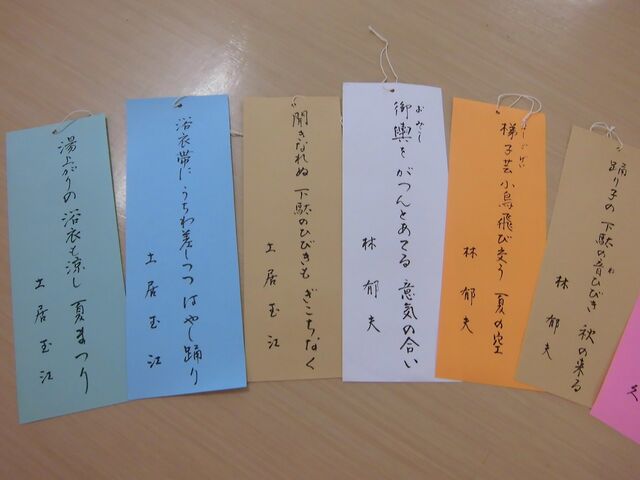 踊り子の 下駄の音ひびき 秋の来る
ね
林 郁夫
梯子芸 小鳥飛び交う 夏の空
林 郁夫
御輿を がつんとあてる 意気の合い
おみこし
林 郁夫
聞きなれぬ 下駄のひびきも ぎこちなく
土居玉江
浴衣帯に うちわ差しつつ はやし踊り
土居玉江
湯上がりの 浴衣も涼し 夏まつり
土居玉江